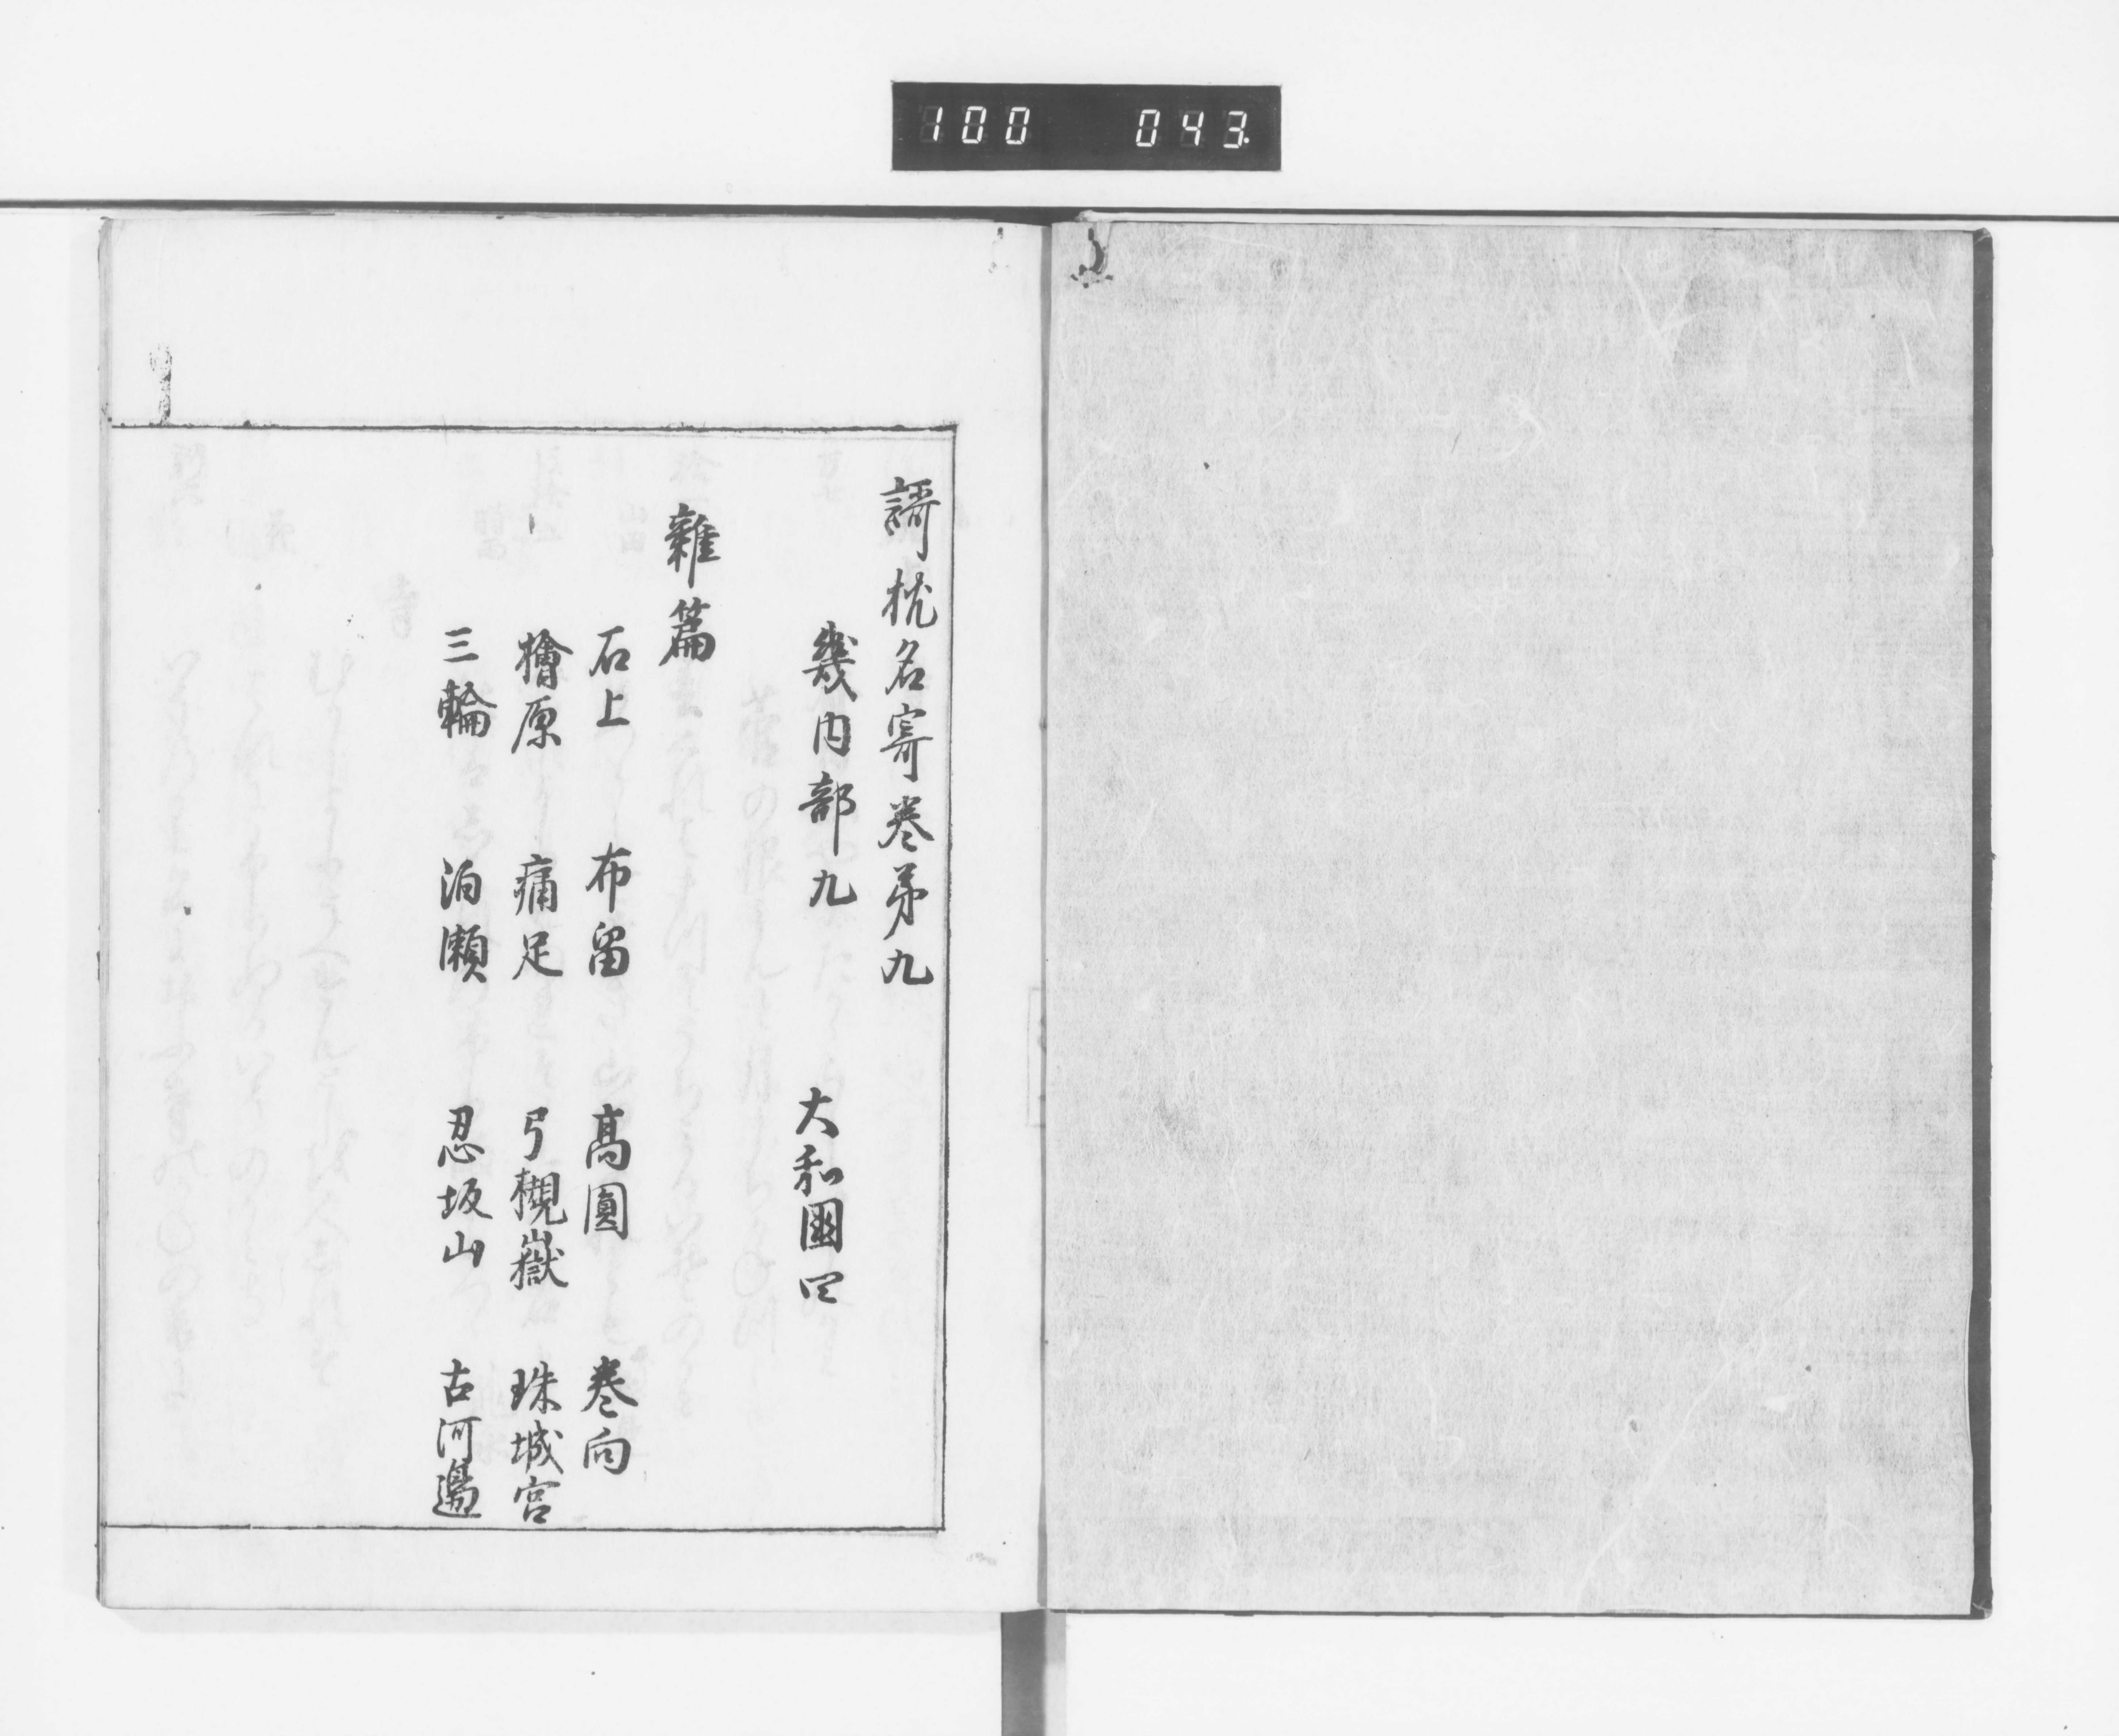 100 043.
謌枕名寄卷第九
幾内部九 大和國四
雜篇
石上 布留 髙圓 卷向
檜原 痛足 弓槻嶽 珠城宮
三輪 泊瀬 忍坂山 古河邊